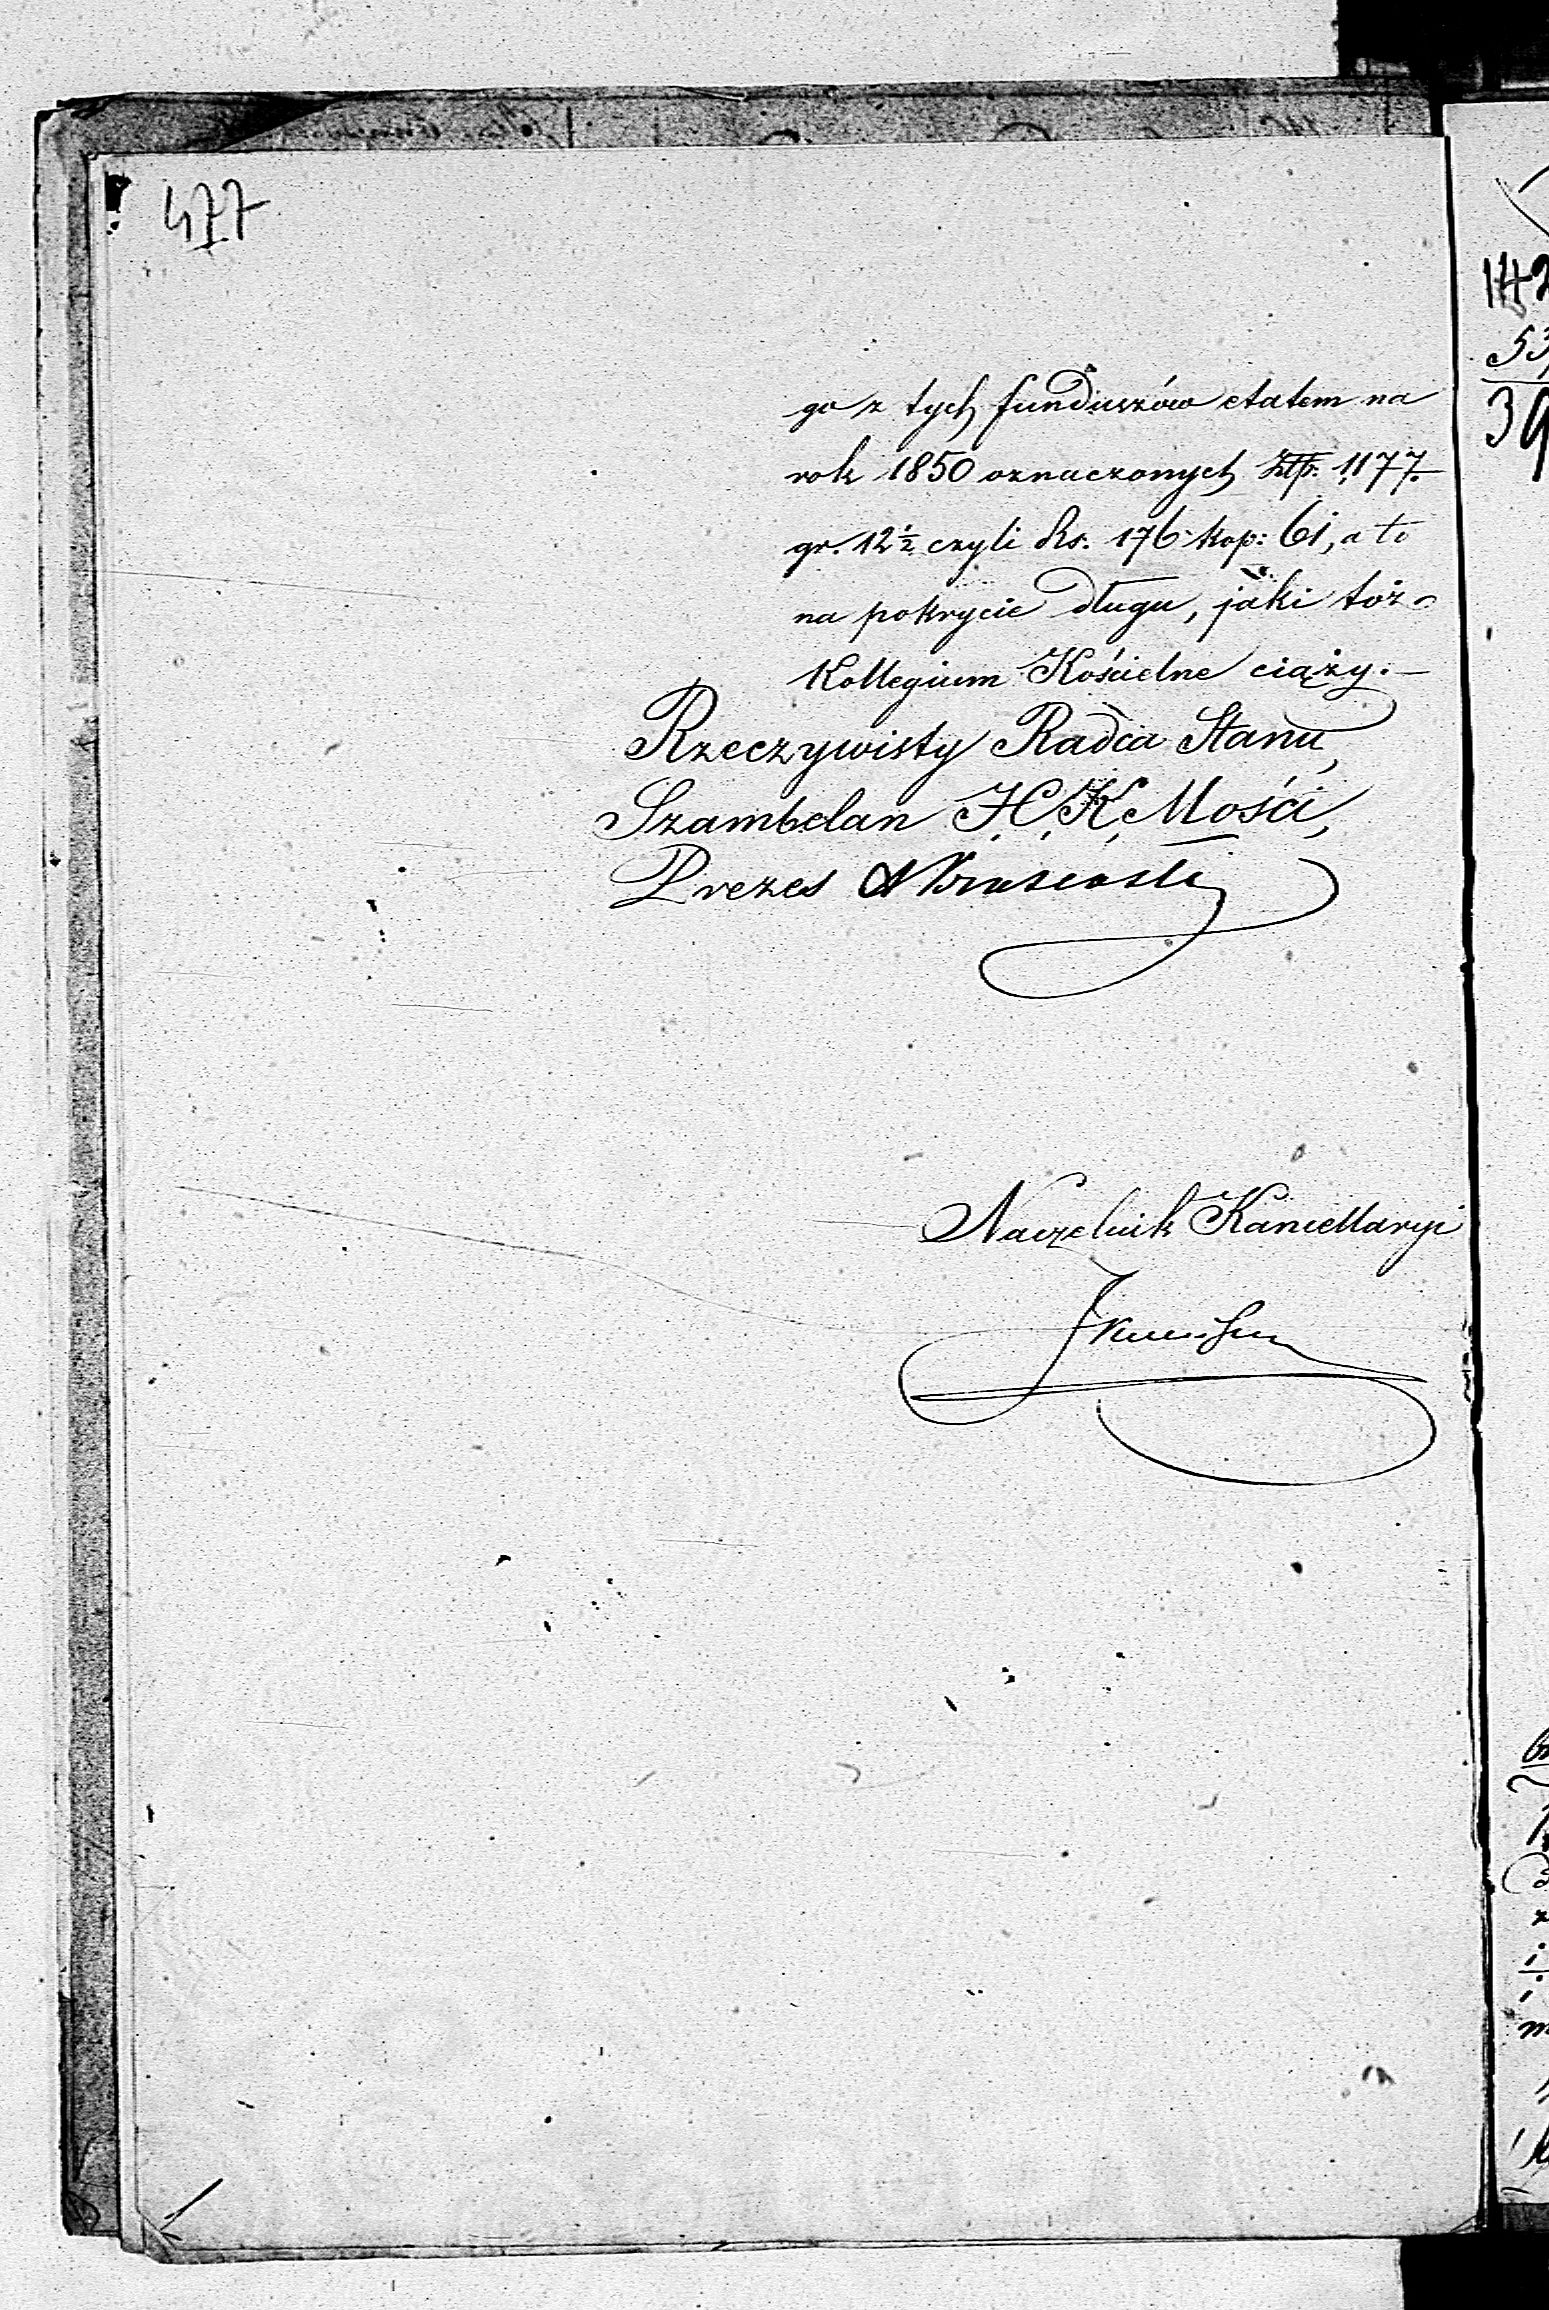 477
go z tych funduszów etatem na
rok 1850 oznaczonych Złp. 1177.
gr. 12½ czyli Rs. 176 kop: 61, a to
na pokrycie długu, jaki toż
Kollegium Kościelne ciąży.—
Rzeczywisty Radca Stanu,
Szambelan J.C.K. Mości,
Prezes
Naczelnik Kancellaryi
142
53
39